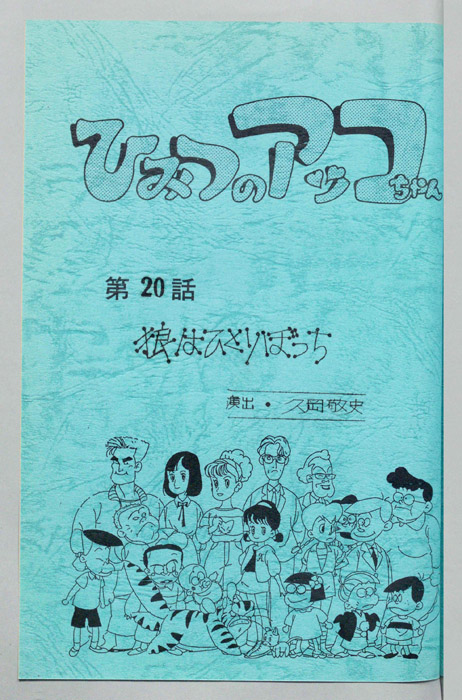 ひみつのアッコちゃん
第20話
狼はひとりぼっち
演出・久岡敬史